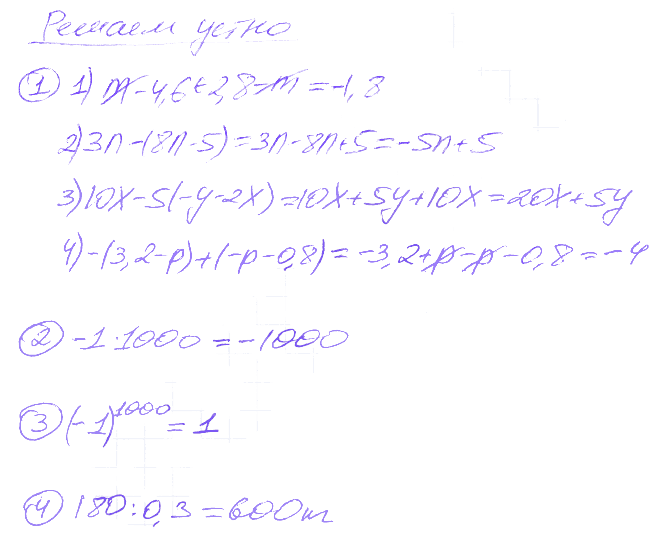 Решаем устно
① 1) m-4,6+2,8-m=-1,8
2) 3n-(8n-5)=3n-8n+5=-5n+5
3) 10x-5(-y-2x)=10x+5y+10x=20x+5y
4) -(3,2-p)+(-p-0,8)=-3,2+p-p-0,8=-4
② -1·1000=-1000
③ (-1)¹⁰⁰⁰=1
④ 180:0,3=600т